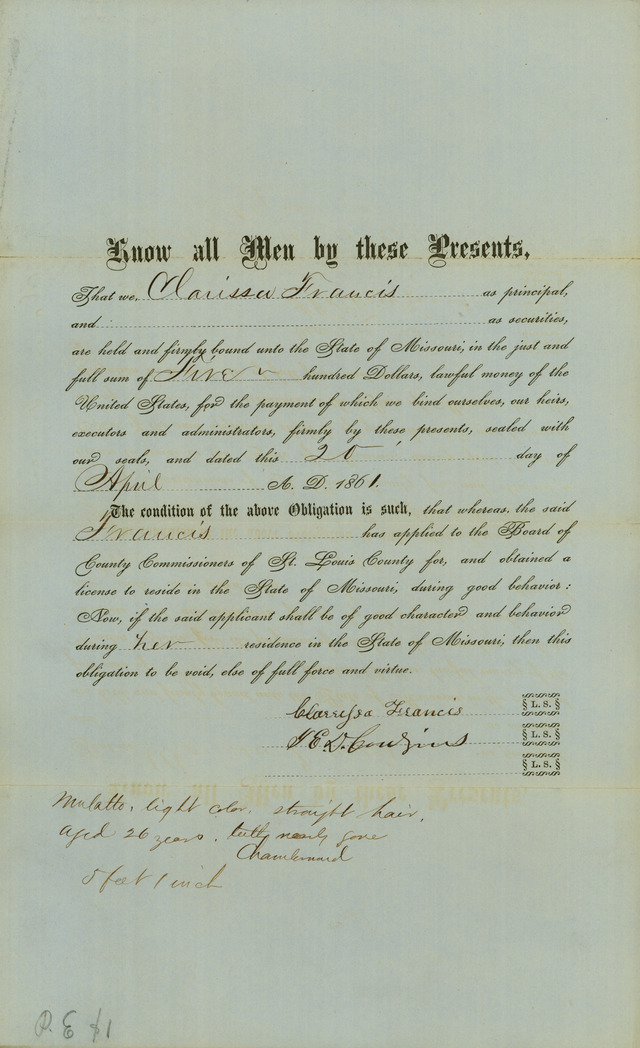 Know all Men by these Presents,
That we, Clarissa Francis as principal,
and as securities,
are held and firmly bound unto the State of Missouri, in the just and
full sum of Five hundred Dollars, lawful money of the
United States, for the payment of which we bind ourselves, our heirs,
executors and administrators, firmly by these presents, sealed with
our seals, and dated this 20 day of
April A. D. 1861.
The condition of the above Obligation is such, that whereas, the said
Francis has applied to the Board of
County Commissioners of St. Louis County for, and obtained a
license to reside in the State of Missouri, during good behavior:
Now, if the said applicant shall be of good character and behavior
during her residence in the State of Missouri, then this
obligation to be void, else of full force and virtue.
Clarrissa Francis § L. S. §
E. D. Couzins § L. S. §
§ L. S. §
Mulatto, light color. straight hair,
aged 26 years, teeth nearly gone
Chambermaid
5 feet 1 inch
P. E $1